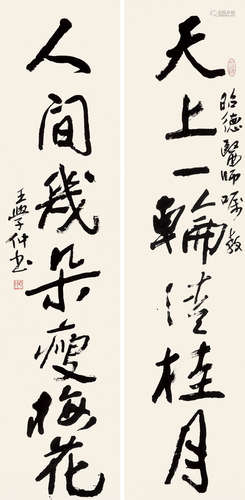 天上一輪清桂月
昭德醫師囑教
人間幾朵瘦梅花
王學仲書